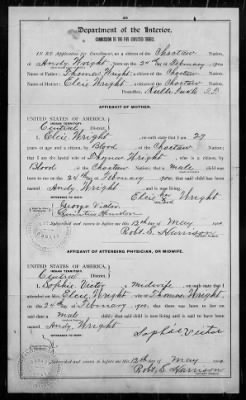 Department of the Interior.
COMMISSION TO THE FIVE CIVILIZED TRIBES.
IN RE Application for Enrollment, as a citizen of the Choctaw Nation,
of Andy Wright, born on the 24th day of February, 190
Name of Father: Thomas Wright, a citizen of the Choctaw Nation.
Name of Mother: Elcie Wright, a citizen of the Choctaw Nation.
AFFIDAVIT OF MOTHER.
UNITED STATES OF AMERICA,
INDIAN TERRITORY,
Central District.
I, Elcie Wright, on oath state that I am 27
years of age and a citizen, by Blood, of the Choctaw Nation;
that I am the lawful wife of Thomas Wright, who is a citizen, by
Blood, of the Choctaw Nation; that a male child was
born to me on 24th day of February, 190; that said child has been
named Andy Wright, and is now living.
Elcie her mark Wright
George Victor
Subscribed and sworn to before me this 13th day of May
Robt. S. Harrison
AFFIDAVIT OF ATTENDING PHYSICIAN, OR MIDWIFE.
UNITED STATES OF AMERICA,
INDIAN TERRITORY,
Central District.
I, Sophie Victor, a Midwife, on oath state that I
attended on Mrs. Elcie Wright, wife of Thomas Wright,
on the 24 day of February, 190; that there was born to her on said date a
male child; that said child is now living and is said to have been
named Andy Wright
Sophie Victor
Subscribed and sworn to before me this 13th day of May
Robt. S. Harrison